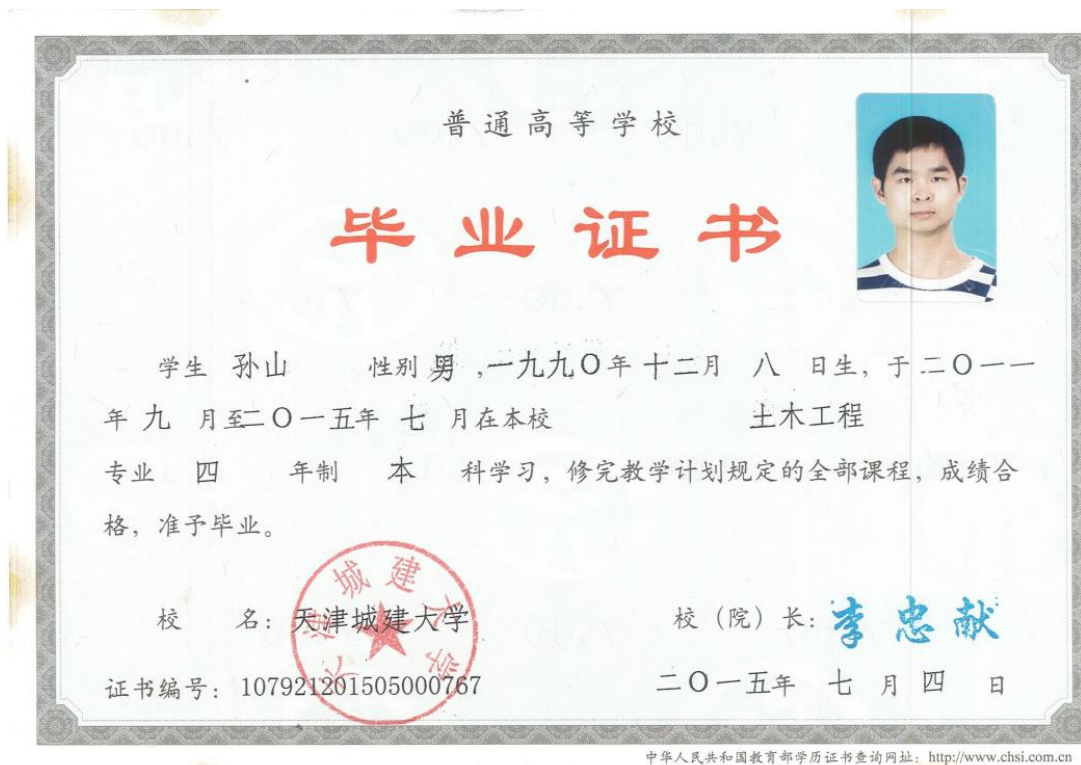 普通高等学校
毕业证书
学生 孙山 性别 男 ,一九九〇年 十二月 八 日生，于 二〇一一
年 九 月至二〇一五年 七 月在本校 土木工程
专业 四 年制 本 科学习，修完教学计划规定的全部课程，成绩合
格，准予毕业。
天津城建大学
校 名：天津城建大学 校（院）长：李忠献
证书编号：107921201505000767 二〇一五年 七 月 四 日
中华人民共和国教育部学历证书查询网址：http://www.chsi.com.cn